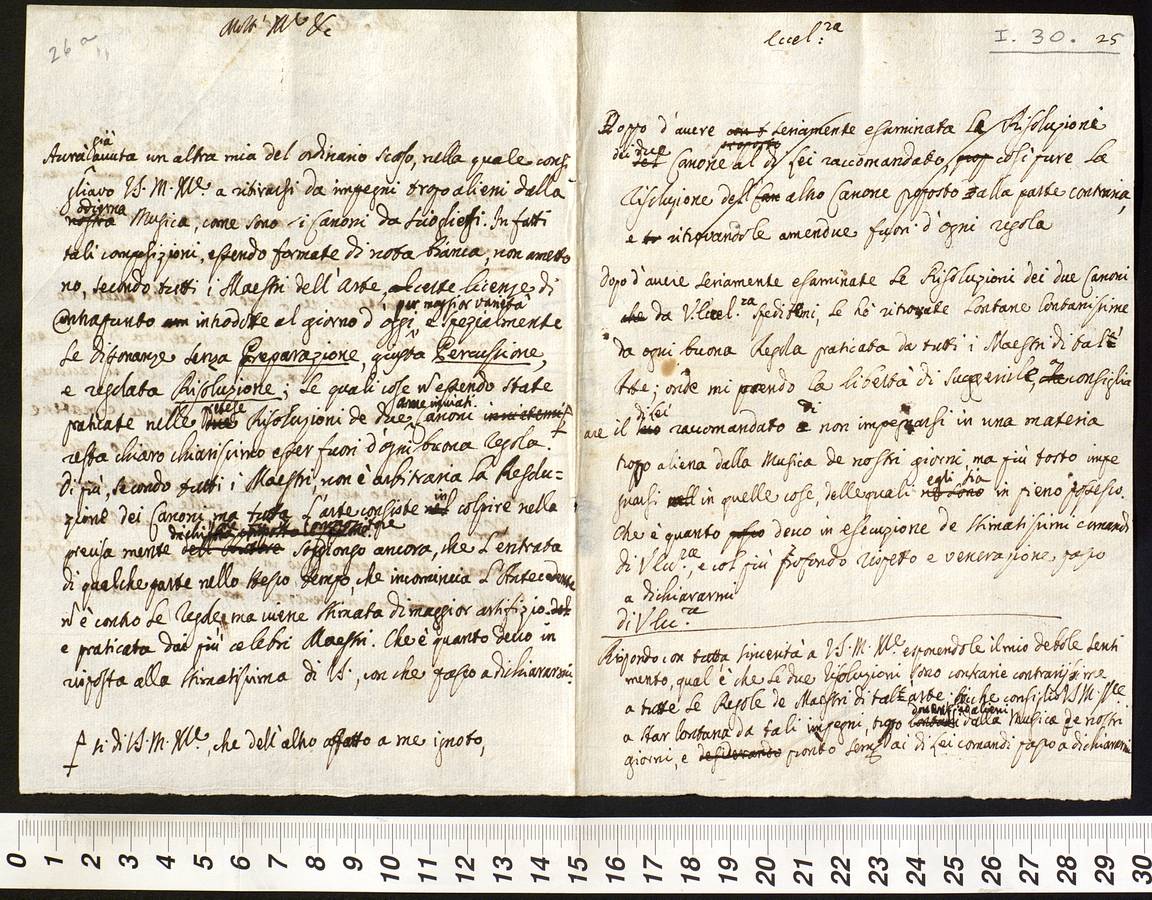 26a
Molt' Mto Rdo &c
già
Aurà avuta un altra mia del ordinario scorso, nella quale consi
gliavo V.S. M. Ille a ritirarsi da impegni tropo alieni dalla
odierna
nostra Musica, come sono i Canoni da sciogliersi. In fatti
tali composizioni, essendo formate di nota bianca, non ametto
no, secondo tutti i Maestri dell'Arte, certe licenze di
per maggior varietà
Contrapunto introdotte al giorno d'oggi, e spezialmente
le dissonanze senza Preparazione, giusta Percussione,
e regolata Risoluzione; le quali cose n essendo state
praticate nelle due Risoluzioni de due Canoni
resta chiaro chiarissimo esser fuori d'ogni buona Regola.
Di più, secondo tutti i Maestri, non è arbitraria la Resolu=
zione dei Canoni, ma tutta l'arte consiste in colpire nella
precisa mente Soggiongo ancora, che l'entrata
di qualche parte nello stesso tempo, che incomincia l'Antecedente
n è contro le Regole, ma viene stimata di maggior artifizio
e praticata dai più celebri Maestri. Che è quanto devo in
risposta alla stimatissima di V.S., con che passo a dichiararmi.
si di V.S. M. Ille, che dell'altro affatto a me ignoto,
Eccel:za
I. 30. 25
Doppo d'avere seriamente esaminata la Risoluzione
dei due proposto
Canone al di Lei raccomandato, così pure la
Risoluzione dell altro Canone proposto dalla parte contraria,
e ritrovandole amendue fuori d'ogni regola
Dopo d'avere seriamente esaminate le Risoluzioni dei due Canoni
che da V. Eccel.za speditemi, le hò ritrovate lontane lontanissime
da ogni buona Regola praticata da tutti i Maestri di tal
Arte; onde mi prendo la libertà di consiglia
di Lei di
are il raccomandato non impegnarsi in una materia
tropo aliena dalla Musica de nostri giorni, ma più tosto impe
egli sia
gnarsi in quelle cose, delle quali in pieno possesso.
Che è quanto devo in esecuzione de stimatissimi comandi
di V. Ecc.za, e col più profondo rispetto e venerazione passo
a dichiararmi
di V. Ecc.za
Rispondo con tutta sincerità à V.S. M. Ille esponendole il mio debole senti
mento, qual'è che le due Risoluzioni sono contrarie contrarissime
a tutte le Regole de Maestri di tal arte: sicche consiglio V.S. M. Ille
a star lontana da tali impegni, tropo dalla Musica de nostri
giorni, e desiderando pronto sempre ai di Lei comandi passo a dichiararmi